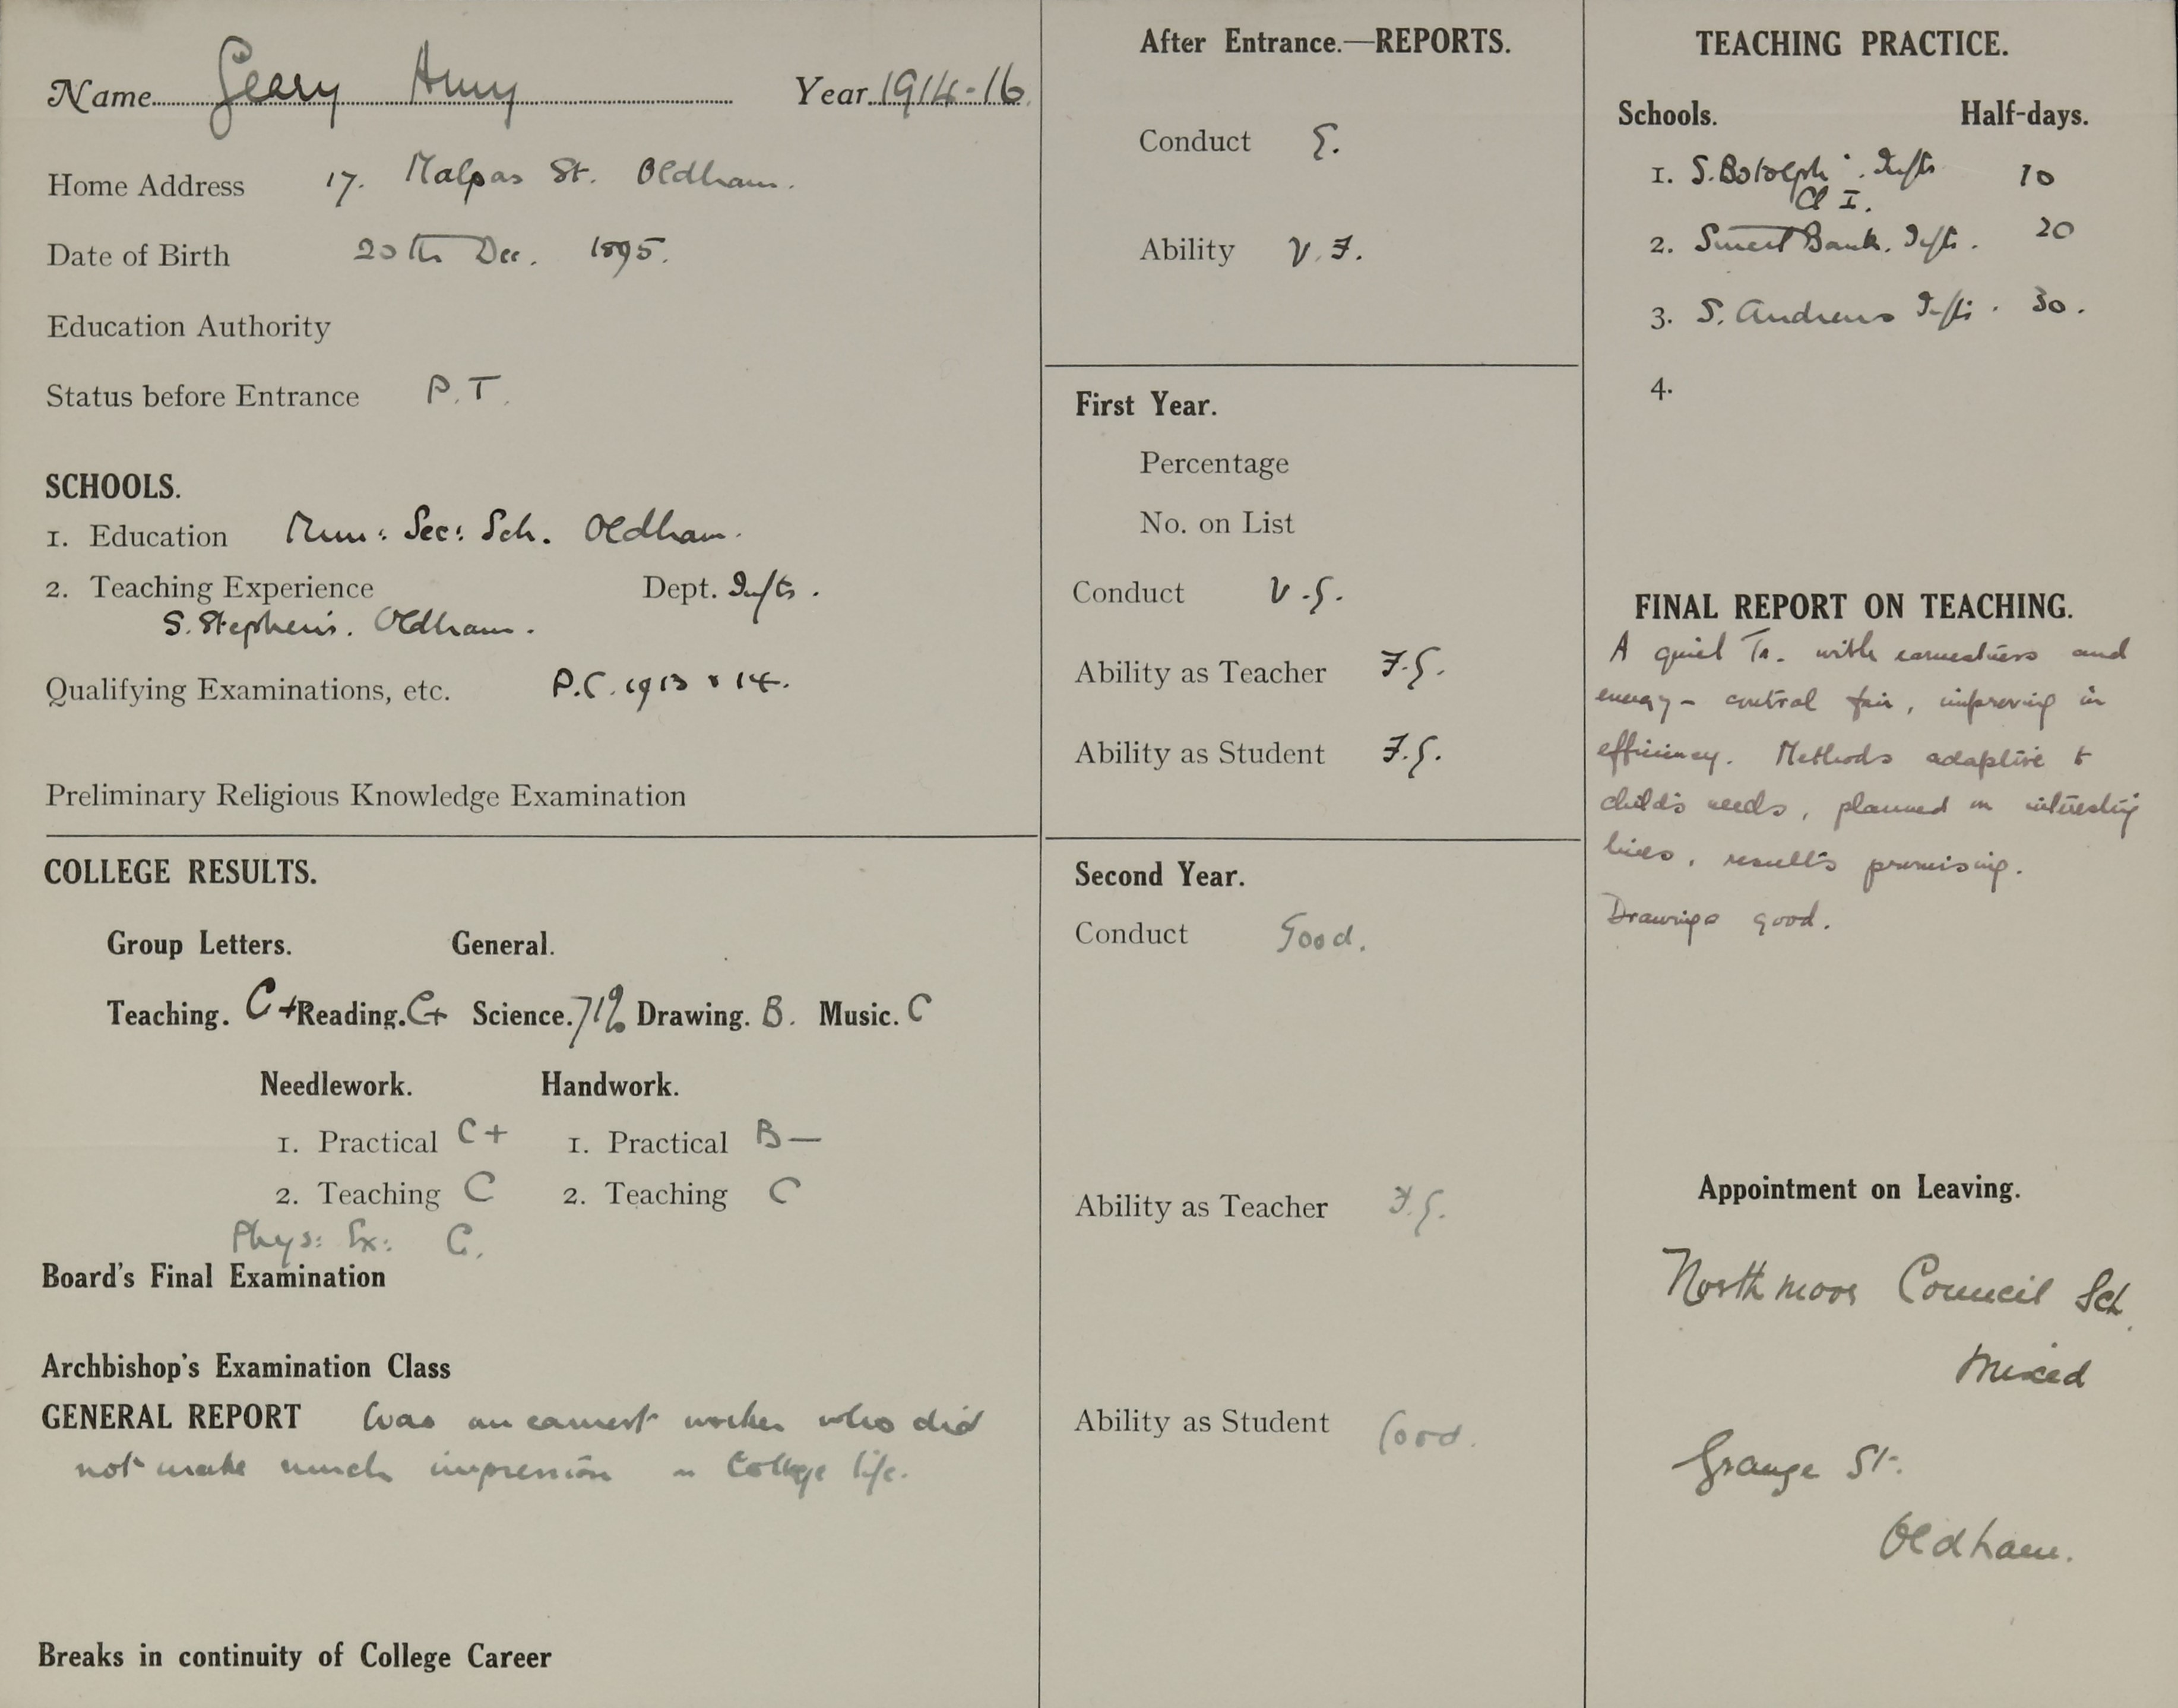 Name Geary Amy Year 1914-16.
Home Address 17. Malpas St. Oldham.
Date of Birth 20th Dec. 1895.
Education Authority
Status before Entrance P.T.
SCHOOLS.
1. Education Mun: Sec: Sch. Oldham.
2. Teaching Experience Dept. Infts.
S. Stephen's. Oldham.
Qualifying Examinations, etc. P.C. 1913 & 14.
Preliminary Religious Knowledge Examination
COLLEGE RESULTS.
Group Letters. General.
Teaching. C+ Reading. C+ Science. 71% Drawing. B. Music. C
Needlework. Handwork.
1. Practical C+ 1. Practical B-
2. Teaching C 2. Teaching C
Phys: Ex: C.
Board's Final Examination
Archbishop's Examination Class
GENERAL REPORT Was an earnest worker who did
not make much impression on College life.
Breaks in continuity of College Career
After Entrance.—REPORTS.
Conduct G.
Ability V.F.
First Year.
Percentage
No. on List
Conduct V.G.
Ability as Teacher F.G.
Ability as Student F.G.
Second Year.
Conduct Good.
Ability as Teacher F.G.
Ability as Student Good.
TEACHING PRACTICE.
Schools. Half-days.
1. S. Botolph's. Infts 10
Cl I.
2. Bank. Infts. 20
3. S. Andrews Infts. 30.
4.
FINAL REPORT ON TEACHING.
A quiet Tr. with earnestness and
energy - control fair, improving in
efficiency. Methods adaptive to
child's needs, planned on interesting
lines, results promising.
Drawings good.
Appointment on Leaving.
Northmoor Council Sch.
Mixed
Grange St.
Oldham.